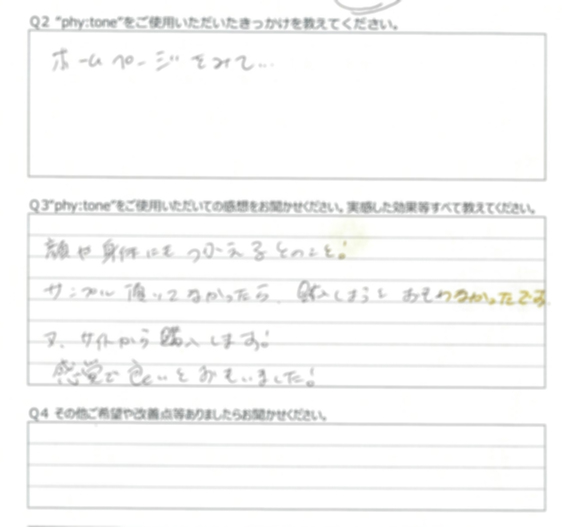 Q2 "phy:tone"をご使用いただいたきっかけを教えてください。
ホームページをみて...
Q3"phy:tone"をご使用いただいての感想をお聞かせください。実感した効果等すべて教えてください。
顔や身体にもつかえるとのこと!
サンプル頂いてなかったら、購入しようと おもわなかったです
又、サイトから購入します!
感覚で良いとおもいました!
Q4 その他ご希望や改善点等ありましたらお聞かせください。